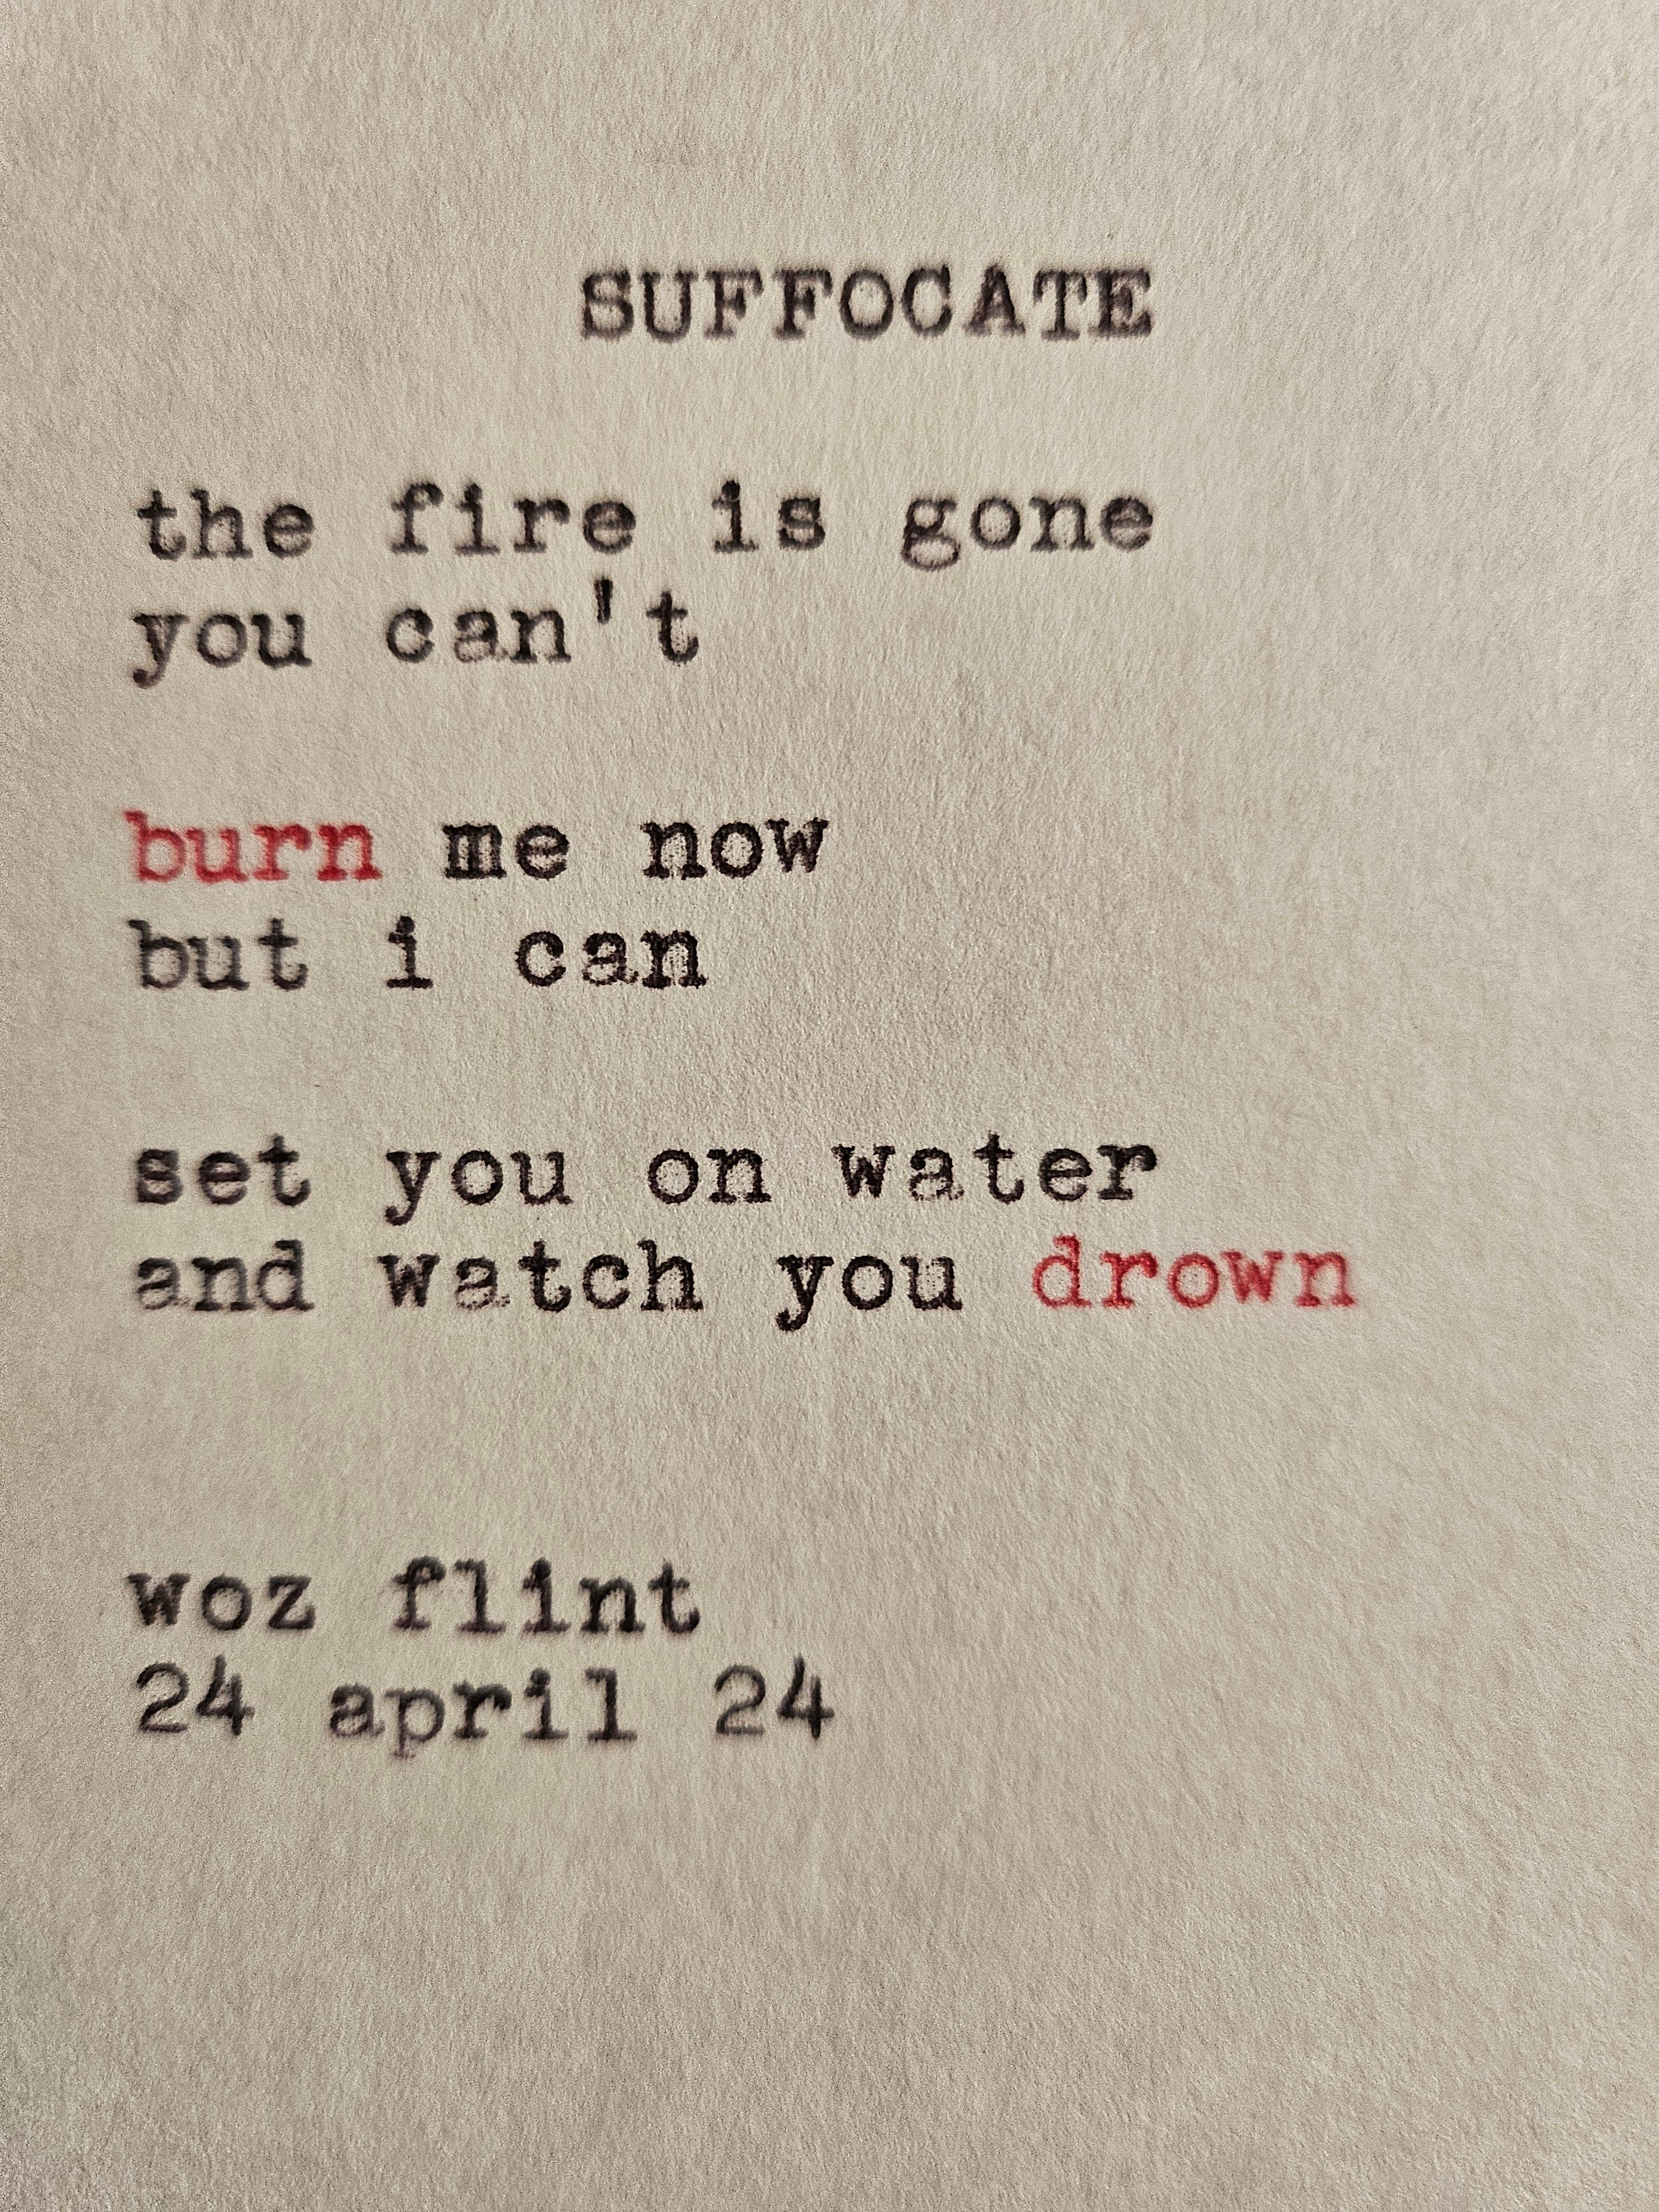 SUFFOCATE
the fire is gone
you can't
burn me now
but i can
set you on water
and watch you drown
woz flint
24 april 24